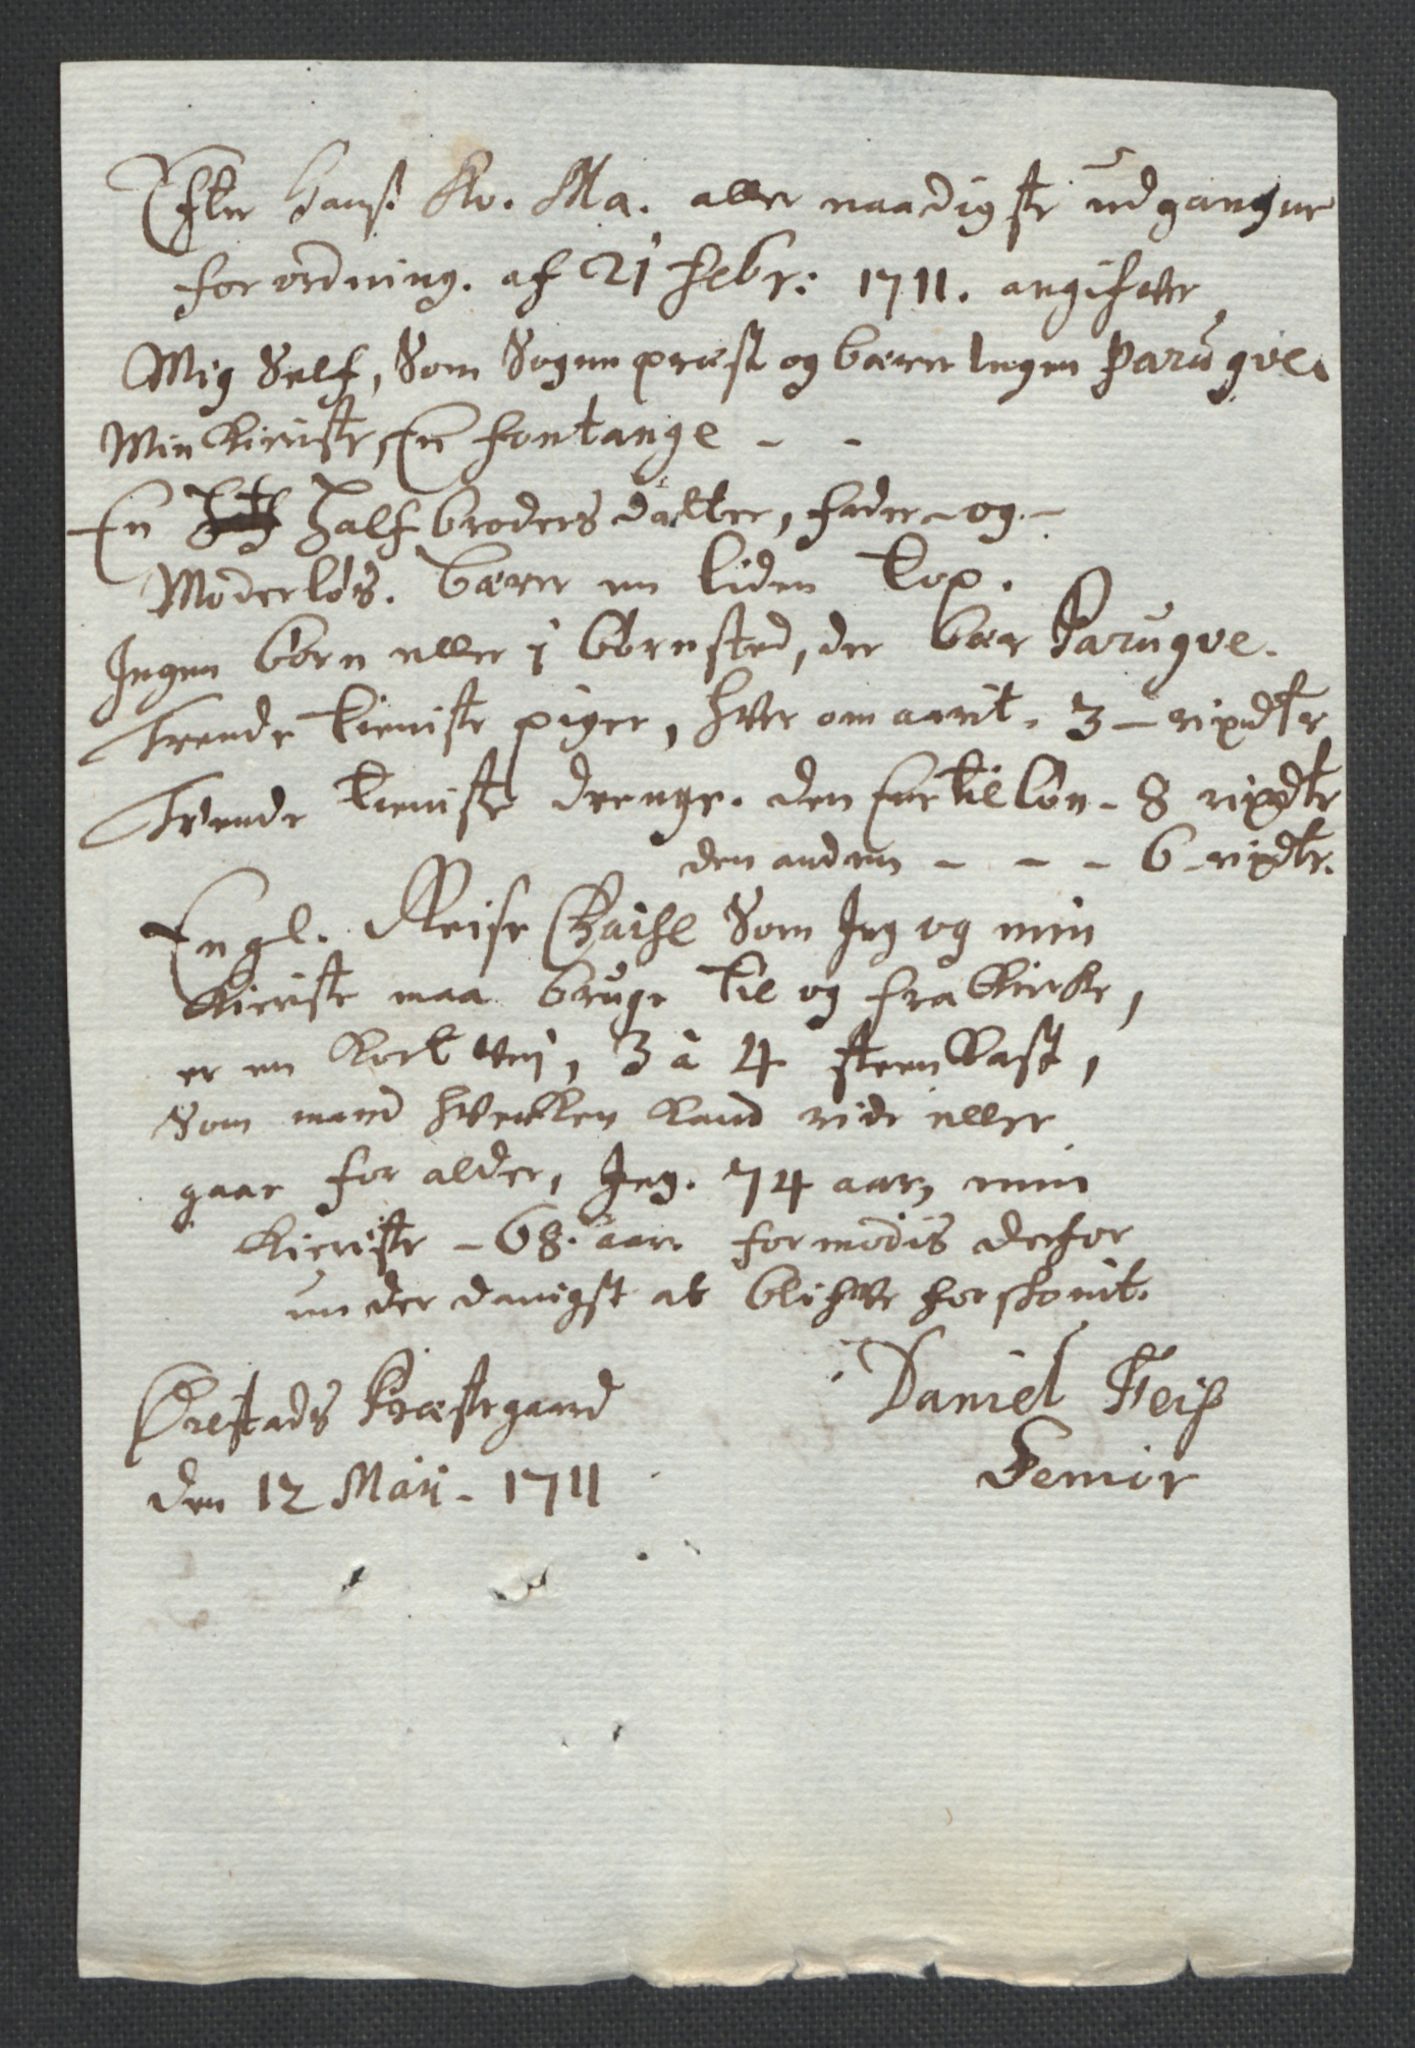 Efter Hans Ko. Ma. aller naadigste udgangne
forordning. af 21 Febr: 1711. angifver
Mig Self, Som Sogne præst og bærer Ingen Parugve.
Min Kieriste, En fontange - -
En Half broders datter, fader - og -
Moderløs. bærer en liden Top.
Ingen børn eller i børnsted, der bær Parugve.
Trende tieniste piger, hver om aarit. 3 - rixdlr
Tvende tieniste drenge. den Ene til løn - 8 rixdlr
den anden - - - 6 - rixdlr.
Engl. Reise Chaise Som Jeg og min
Kieriste maa bruge til og fra Kircke,
er en kort vei, 3 à 4 steen kast,
Som mand hvercken kand ride eller
gaar for alder, Jeg. 74 aar, min
Kieriste - 68. aar. formodis derfor
under danigst at blifve forskonit.
Præstegaard
den 12 Maij - 1711
Daniel
Senior